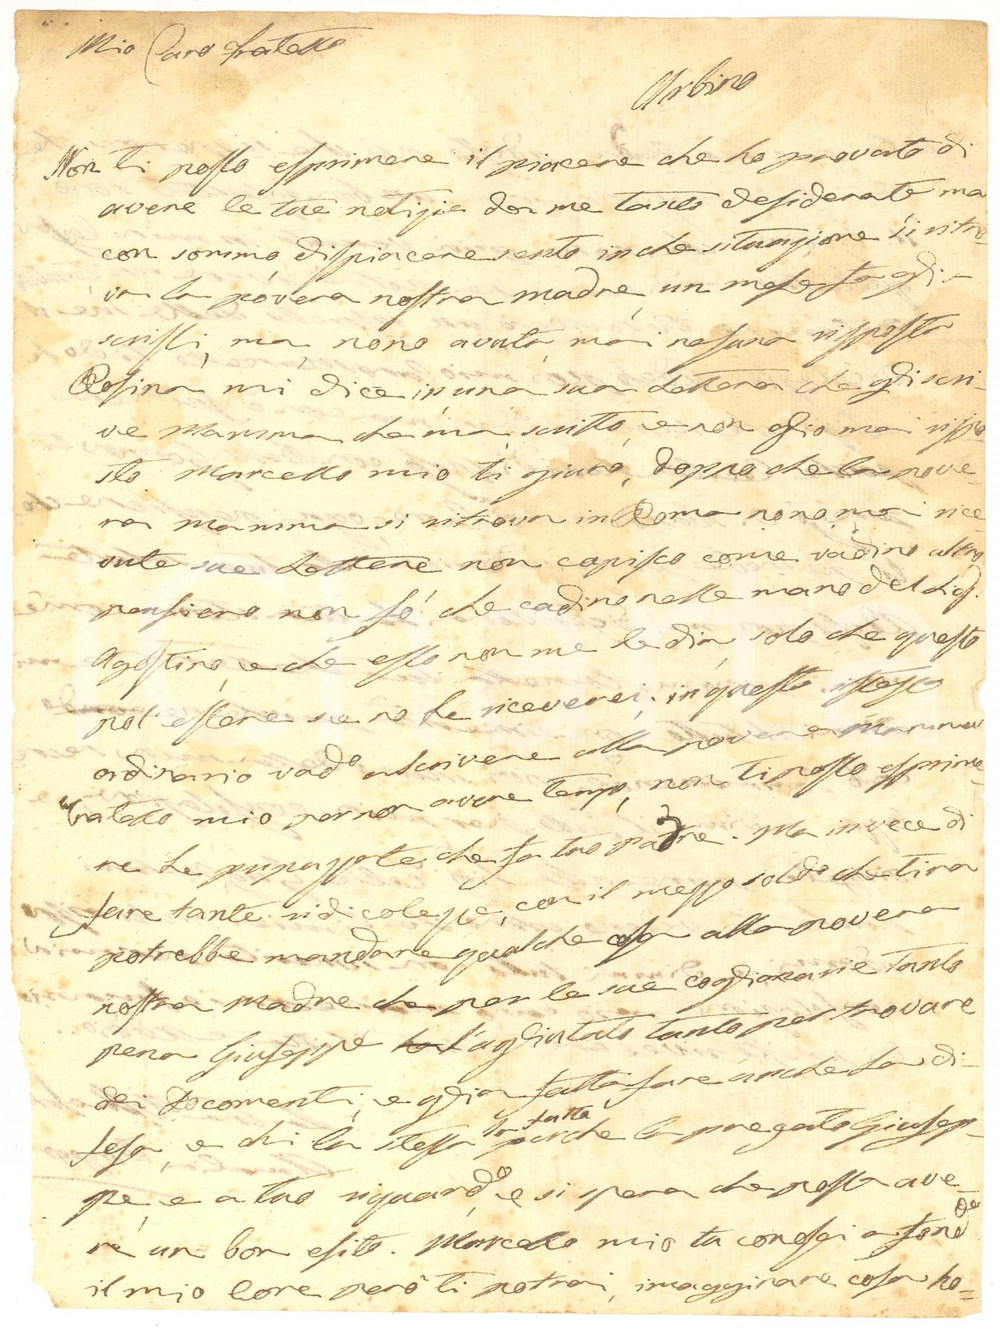 Mio Caro fratello
Urbino
Non ti posso esprimere il piacere che ho provato di
avere le tue notizie da me tanto desiderate ma
con sommo dispiacere sento in che situazione si ritro-
va la povera nostra madre, un mese fa gli
scrissi, ma, nono avuta, mai nesuna risposta
Rosina mi dice in una sua Lettera che gli scri-
ve Mamma che mà, scritto, e non gliò mai rispo
sto Marcello mio ti giuro, doppo che la pove-
ra mamma si ritrova in Roma nonò, mai rice
vute sue Lettere non capisco come vadino altro
pensiero non fò che cadino nelle mano del Sig.
Agostino, e che esso non me le dia solo che questo
pol' essere se no le riceverei, in questo istesso
ordinario vado a scrivere alla povera Mamma
Fratello mio per non avere tempo, non ti posso esprime-
re Le pupazzate, che fa tuo padre. Ma invece di
fare tante ridicolezze, con il mezzo soldo che tira
potrebbe mandare qualche cosa alla povera
nostra Madre che per le sue coglionarie tanto
pena Giuseppe l'agliutato tanto per trovare
dei Documenti, e glia fatto fare anche la di-
fesa, e chi la stesa la fatta perche la pregato Giusep-
pe, e a tuo riguardo, e si spera che possa ave-
re un bon esito. Marcello mio tu conosci a fondo
il mio Core però ti potrai, imagginare cosa ho-